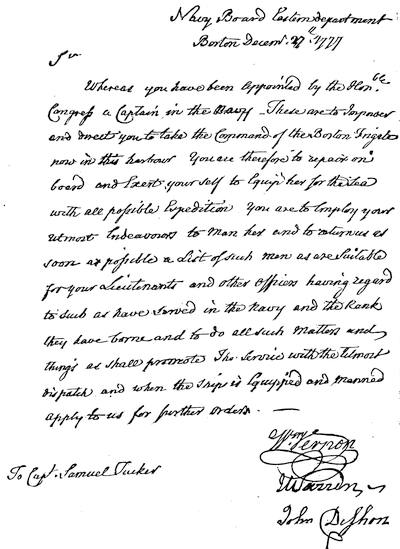 Navy Board Eastern department
Boston Decemr. 27th 1777
Sir
Whereas you have been appointed by the Honble
Congress a Captain in the Navy - These are to Impower
and direct you to take the Command of the Boston Frigate
now in this harbour You are therefore to repair on
board and Exert yourself to Equip her for the Sea
with all possible Expedition You are to Employ your
utmost Endeavours to man her and to return us as
soon as possible a List of such men as are Suitable
for your Lieutenants and other officers having regard
to such as have Served in the Navy and the Rank
they have borne and to do all such Matters and
things as shall promote The Service with the Utmost
dispatch and when the Ship is Equipped and manned
apply to us for further orders. —
Wm Vernon
J Warren
John Deshon
To Capt. Samuel Tucker